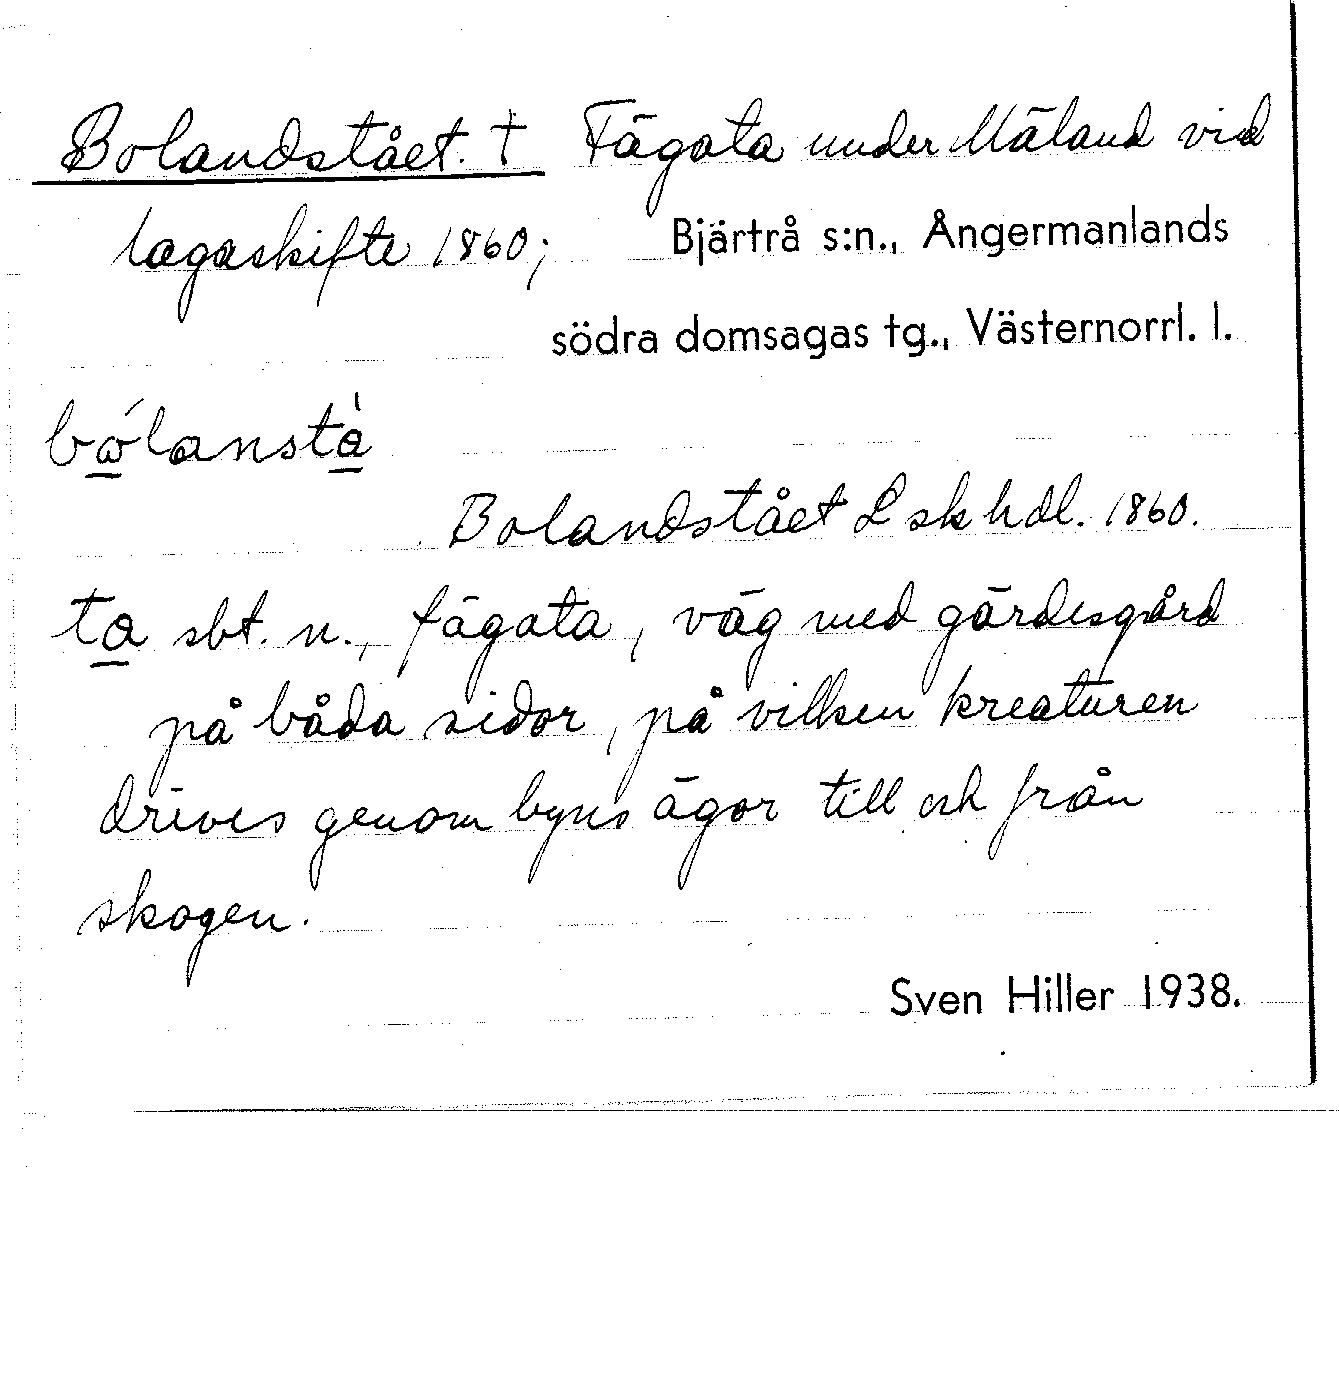 Bolandstået. † Fägata under Mäland vid
lagaskifte 1860; Bjärtrå s:n., Ångermanlands
södra domsagas tg., Västernorrl. l.
bólanstà
Bolandstået L sk hdl. 1860.
ta sbt. n., fägata, väg med gärdesgård
på båda sidor, på vilken kreaturen
drives genom byns ägor till och från
skogen.
Sven Hiller 1938.